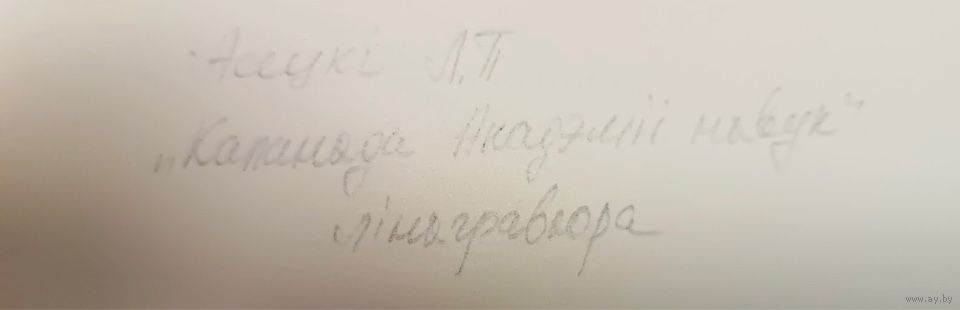 Асецкі Л.П
„Каланада Акадэміі навук"
лінагравюра
www.ay.by